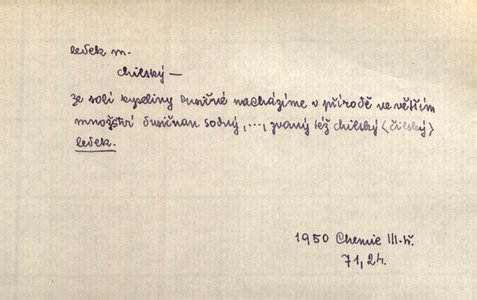 ledek m.
chilský —
Ze solí kyseliny dusičné nacházíme v přírodě ve větším
množství dusičnan sodný, ..., zvaný též chilský <čilský>
ledek.
1950 Chemie III. tř.
71, 2ř.